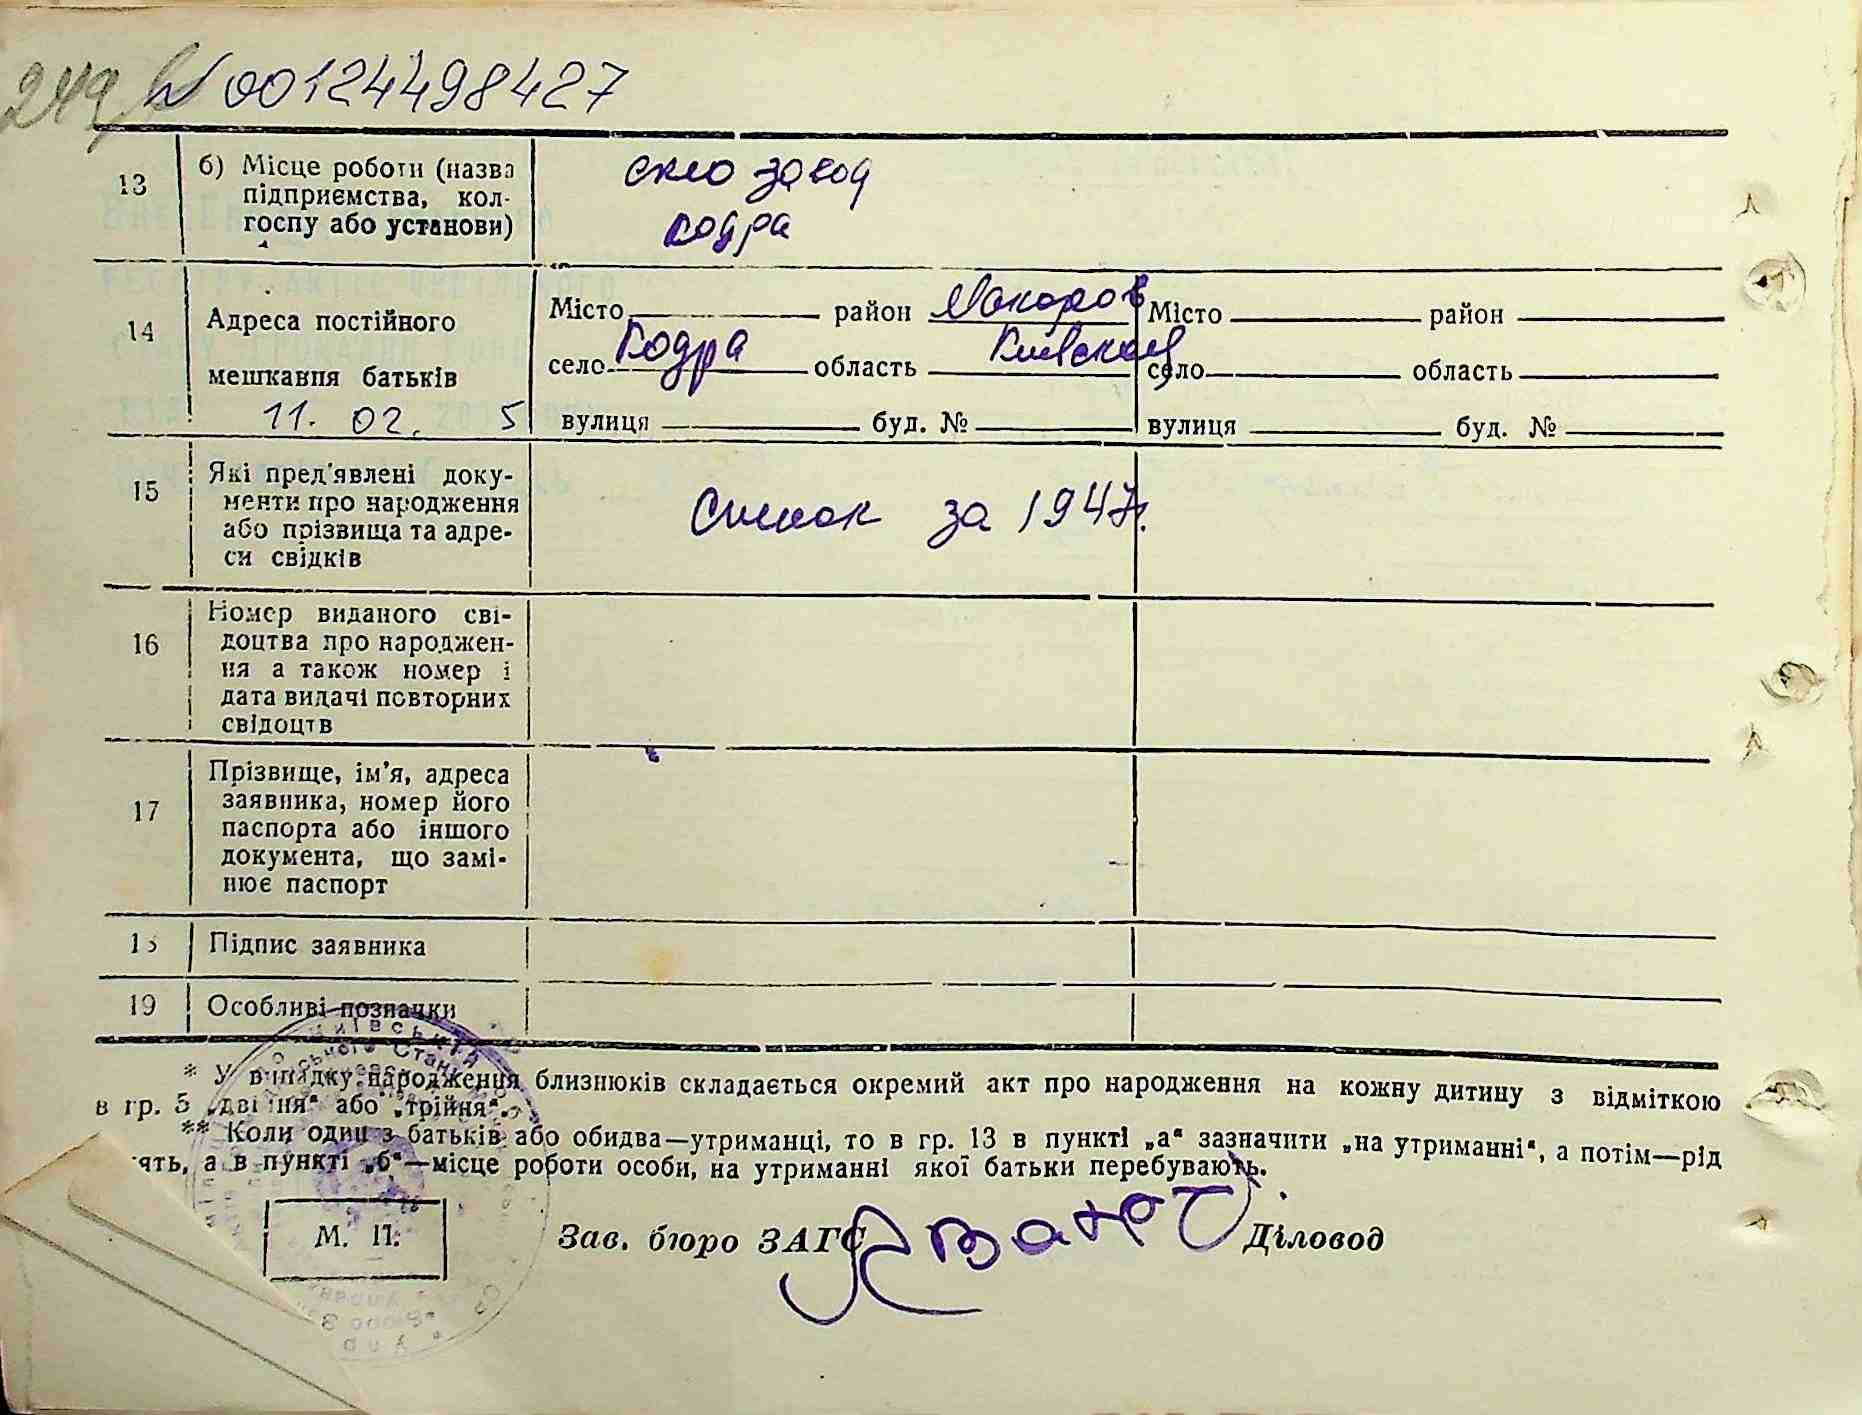 249 № 00124498427
13 б) Місце роботи (назва підприємства, кол-
госпу або установи)
скло завод
Кодра
14 Адреса постійного
мешкання батьків
11. 02. 5
Місто район Макаров
село Кодра область Киевская
вулиця буд. №
Місто район
село область
вулиця буд. №
15 Які пред'явлені доку-
менти про народження
або прізвища та адре-
си свідків
Список за 1947г.
16 Номер виданого сві-
доцтва про народжен-
ня а також номер і
дата видачі повторних
свідоцтв
17 Прізвище, ім'я, адреса
заявника, номер його
паспорта або іншого
документа, що замі-
нює паспорт
18 Підпис заявника
19 Особливі позначки
* У випадку народження близнюків складається окремий акт про народження на кожну дитину з відміткою
в гр. 5 „двійня“ або „трійня“.
** Коли один з батьків або обидва—утриманці, то в гр. 13 в пункті „а“ зазначити „на утриманні“, а потім—рід
занять, а в пункті „б“—місце роботи особи, на утриманні якої батьки перебувають.
М. П.
Зав. бюро ЗАГС Діловод